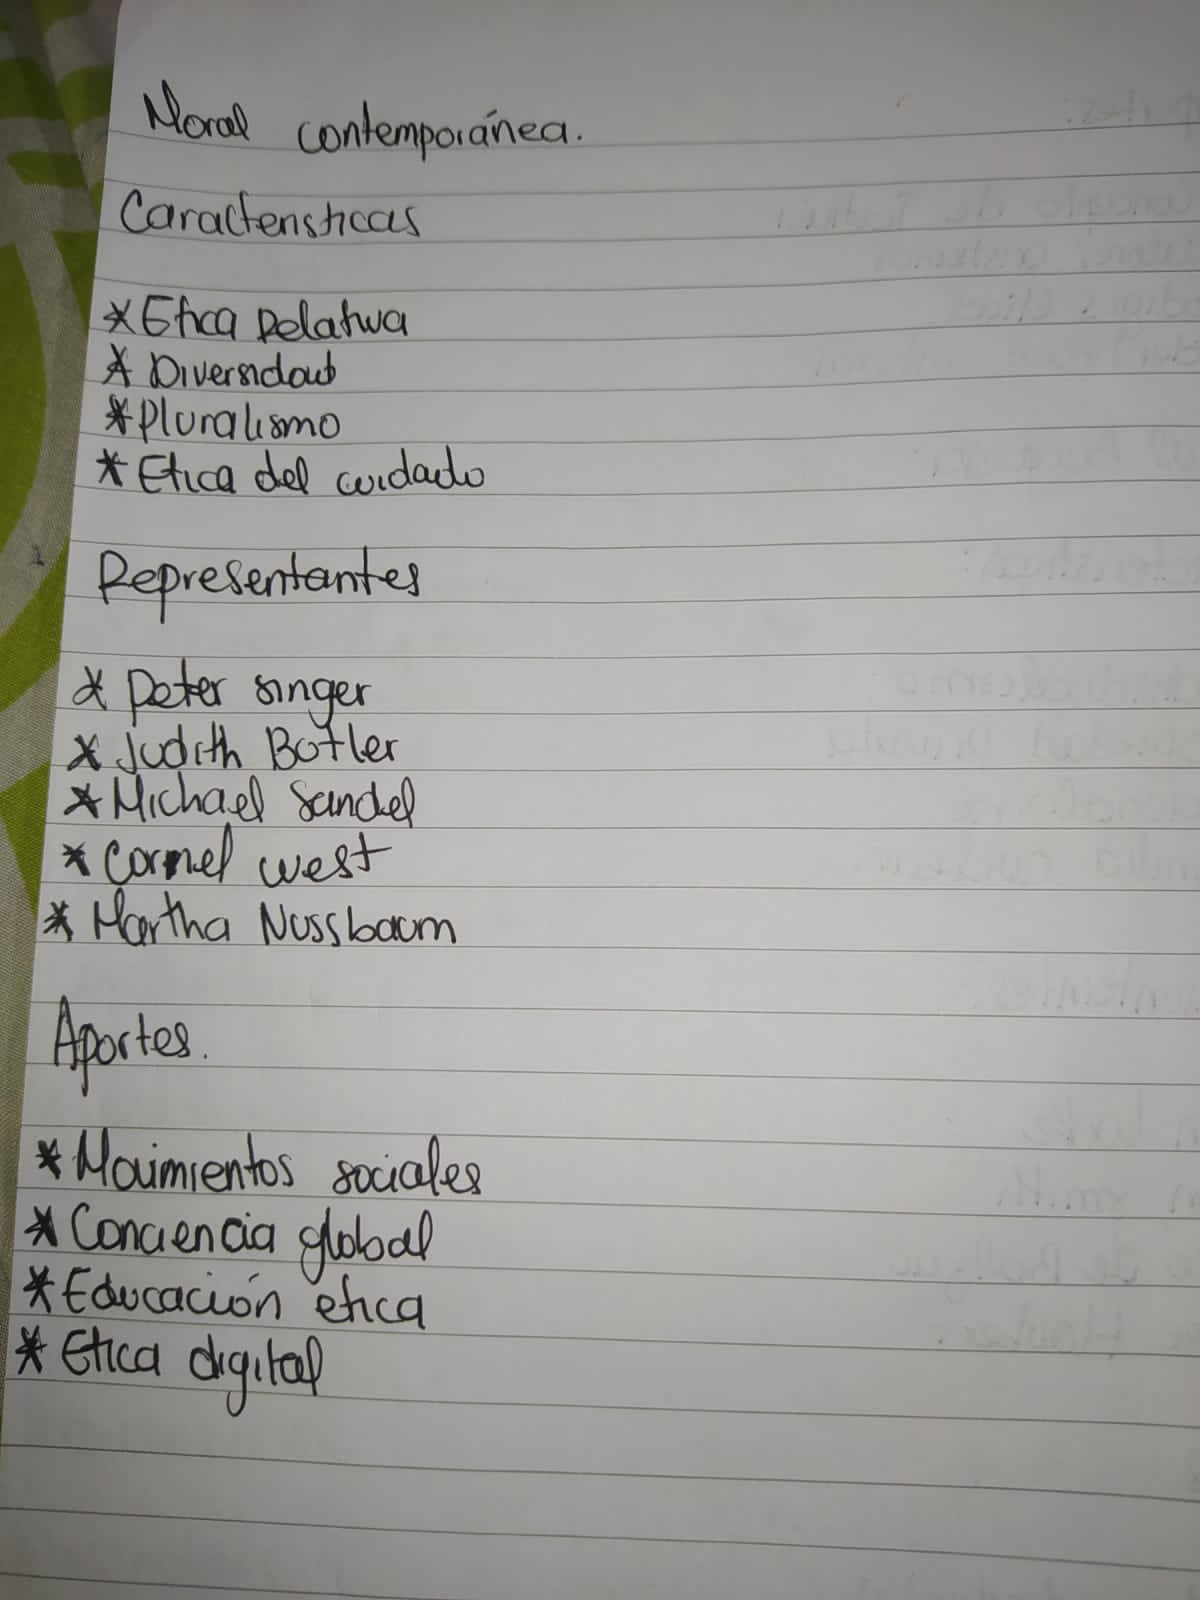 Moral contemporánea.
Caracteristicas
* Etica Relativa
* Diversidad
* Pluralismo
* Etica del cuidado
Representantes
* Peter singer
* Judith Botler
* Michael Sandel
* Cornel west
* Martha Nussbaum
Aportes.
* Movimientos sociales
* Conciencia global
* Educación etica
* Etica digital